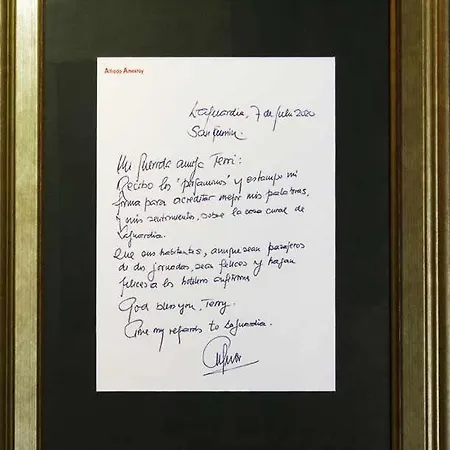 Alfredo Amestoy
Laguardia, 7 de Julio 2020
San Fermín.
Mi querida amiga Terri:
Recibo los "pergaminos" y estampo mi
firma para acreditar mejor mis palabras,
y mis sentimientos, sobre la casa cural de
Laguardia.
Que sus habitantes, aunque sean pasajeros
de dos jornadas, sean felices y hagan
felices a los hoteleros
God bless you, Terry.
Give my regards to Laguardia.